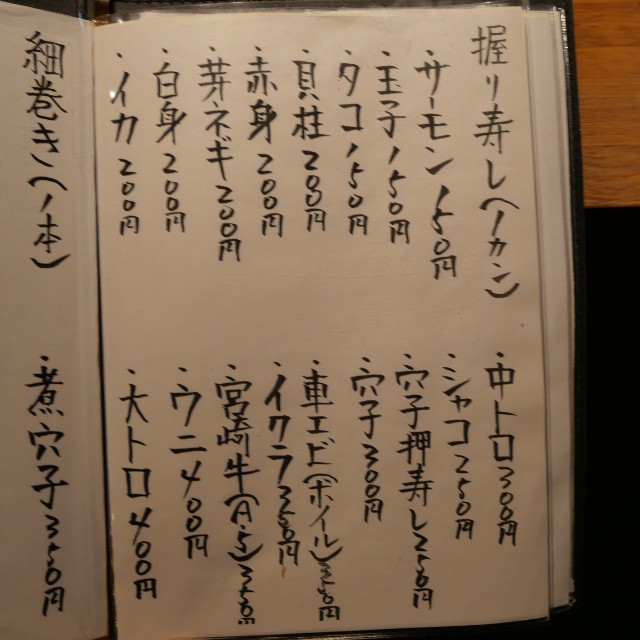 握り寿し(1カン)
・サーモン150円
・玉子150円
・タコ150円
・貝柱200円
・赤身200円
・芽ネギ200円
・白身200円
・イカ200円
・中トロ300円
・シャコ250円
・穴子押寿し250円
・穴子300円
・車エビ(ボイル)350円
・イクラ350円
・宮崎牛(A・5)350円
・ウニ400円
・大トロ400円
細巻き(1本)
・煮穴子350円